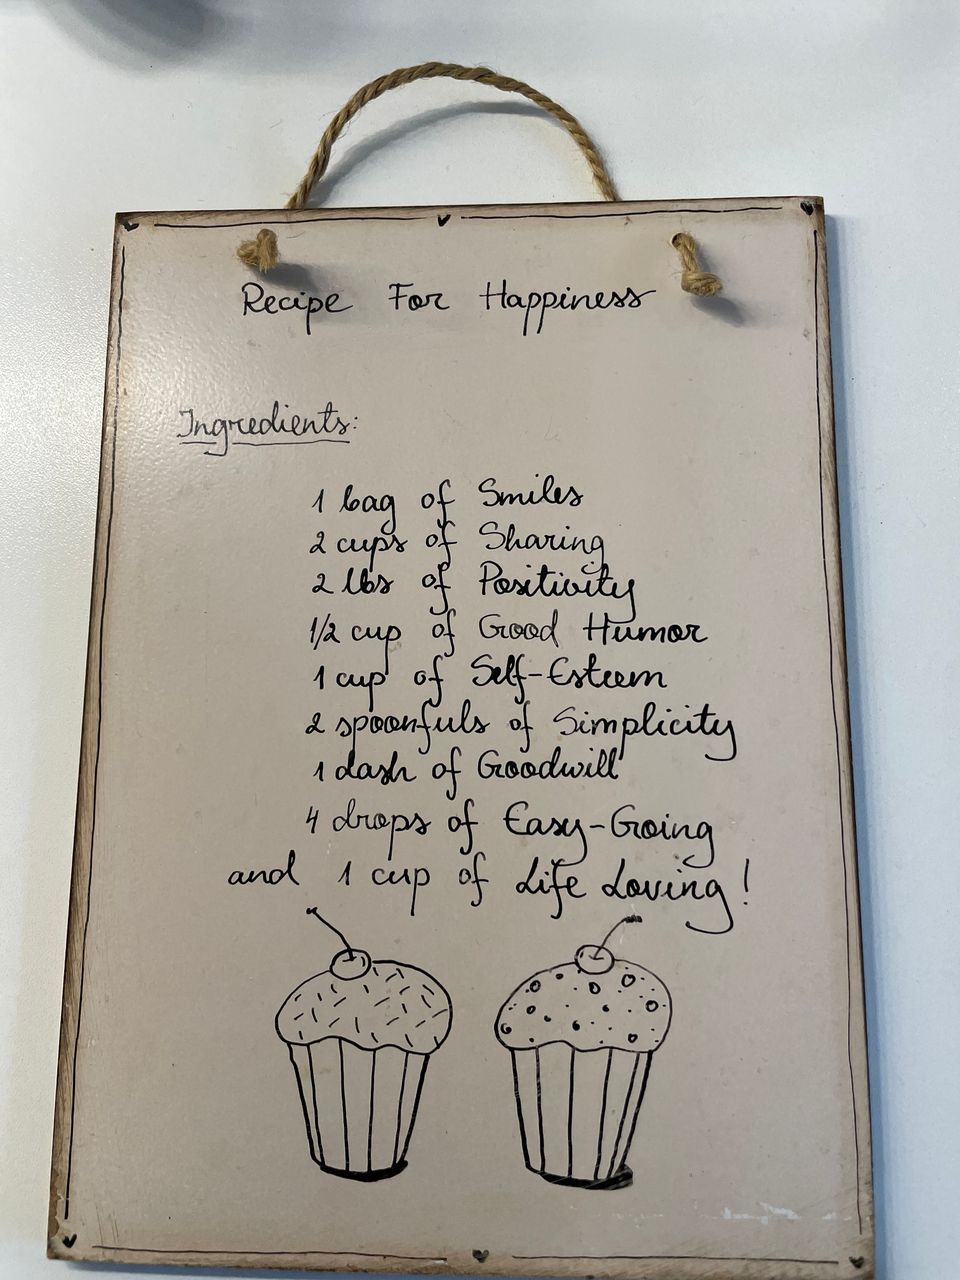 Recipe For Happiness
Ingredients:
1 bag of Smiles
2 cups of Sharing
2 lbs of Positivity
1/2 cup of Good Humor
1 cup of Self-Esteem
2 spoonfuls of Simplicity
1 dash of Goodwill
4 drops of Easy-Going
and 1 cup of Life Loving!